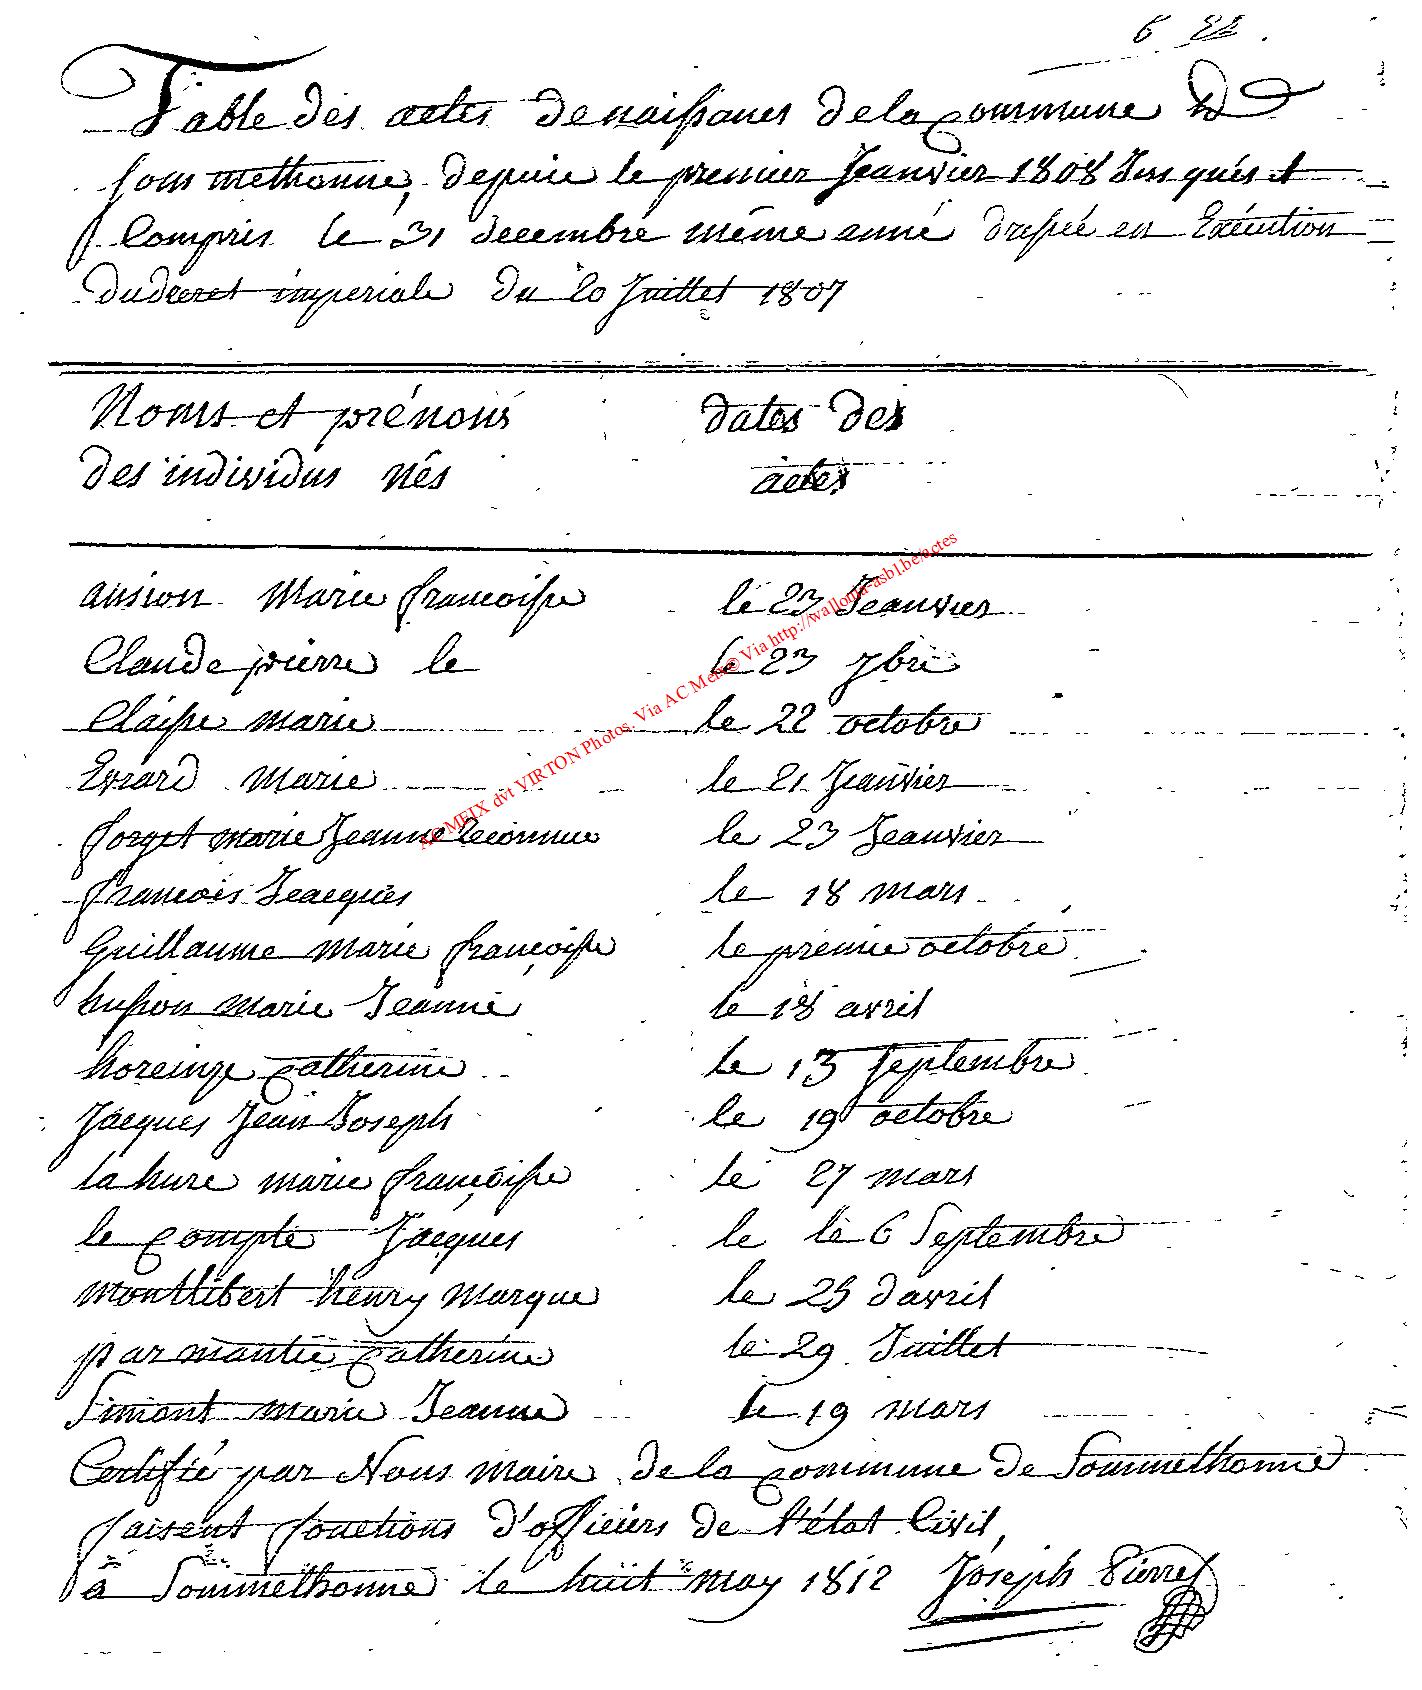 6 22.
Table des actes de naissances de la commune de
sommethonne, depuie le premier Jeanvier 1808 Jusqués et
Compris le 31 decembre même anné dressée en Exécution
du decret imperiale du 20 Juillet 1807
Noms et prénoms dates des
des individus nés actes
ansion Marie francoisse le 23 Jeanvier
Claude pierre le le 23 7bre
Claisse marie le 22 octobre
Evrard Marie le 21 Jeanvier
forget marie Jeanne le 23 Jeanvier
francois Jeacques le 18 mars
Guillaume marie françoisse le premie octobre
husson marie Jeanne le 18 avril
horeinge catherine le 13 septembre
Jacques Jean Joseph le 19 octobre
lahure marie françoisse le 27 mars
le compte Jacques le le 6 Septembre
montlibert henry marque le 25 davril
parmantie catherine le 29 Juillet
Simont marie Jeanne le 19 mars
Certifié par Nous maire de la commune de Sommethonne
faisent fonctions d'officiers de l'état Civil,
à Sommethonne le huit may 1812 Joseph Pierret
AC MEIX dvt VIRTON Photos. Via AC Meix@ Via http://wallonia-asbl.be/actes